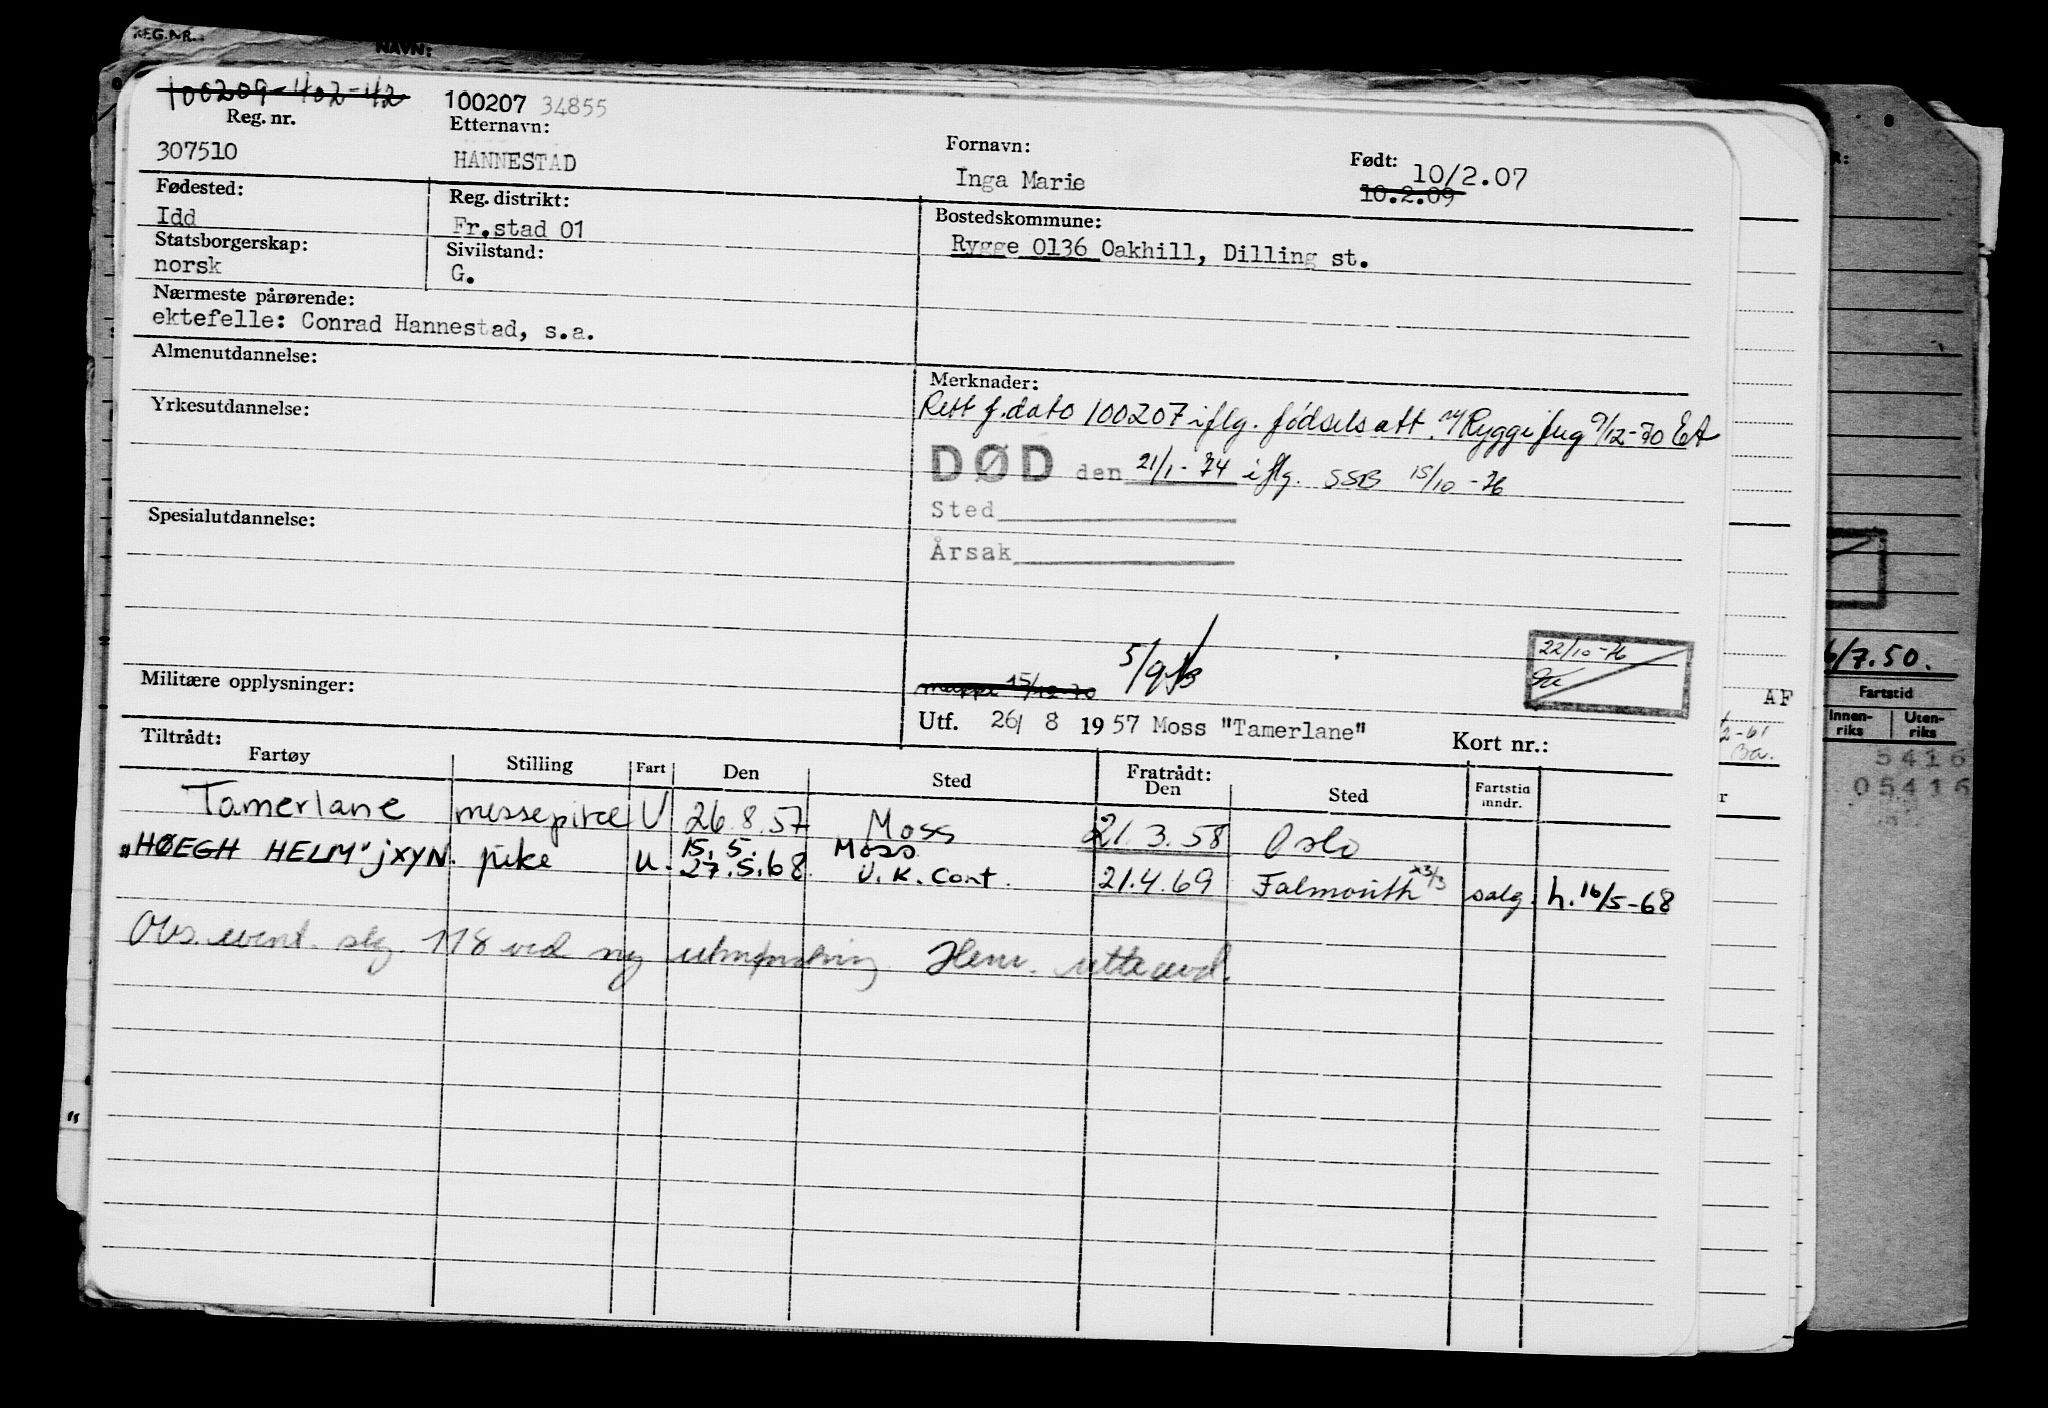 REG.NR.:
NAVN:
100209-402-42
100207 34855
Reg. nr.
Etternavn:
Fornavn:
Født:
307510
HANNESTAD
Inga Marie
10/2.07
10.2.09
Fødested:
Reg. distrikt:
Bostedskommune:
Idd
Fr.stad 01
Rygge 0136 Oakhill, Dilling st.
Statsborgerskap:
Sivilstand:
norsk
G.
Nærmeste pårørende:
ektefelle: Conrad Hannestad, s.a.
Almenutdannelse:
Merknader:
Yrkesutdannelse:
Rett f.dato 100207 iflg. fødselsatt. 9/12-70 EA
DØD den 21/1-74 iflg. SSB 15/10-76
Sted
Spesialutdannelse:
Årsak
5/9
22/10-76
6/7.50.
Militære opplysninger:
mappe 15/12-70
Fartstid
AF
Utf. 26/ 8 1957 Moss "Tamerlane"
Kort nr.:
Innen-
riks
Uten-
riks
5416
05416
Tiltrådt:
Fratrådt:
Fartøy
Stilling
Fart
Den
Sted
Den
Sted
Fartstid
inndr.
Tamerlane messepike U 26.8.57 Moss 21.3.58 Oslo
"HØEGH HELM" JXYN. pike u. 15.5. Moss
27.5.68 U.K. Cont. 21.4.69 Falmouth 23/3 salg. h. 16/5-68
Obs. event. slg. 118 ved ny utmønstring Henv. rette avd.